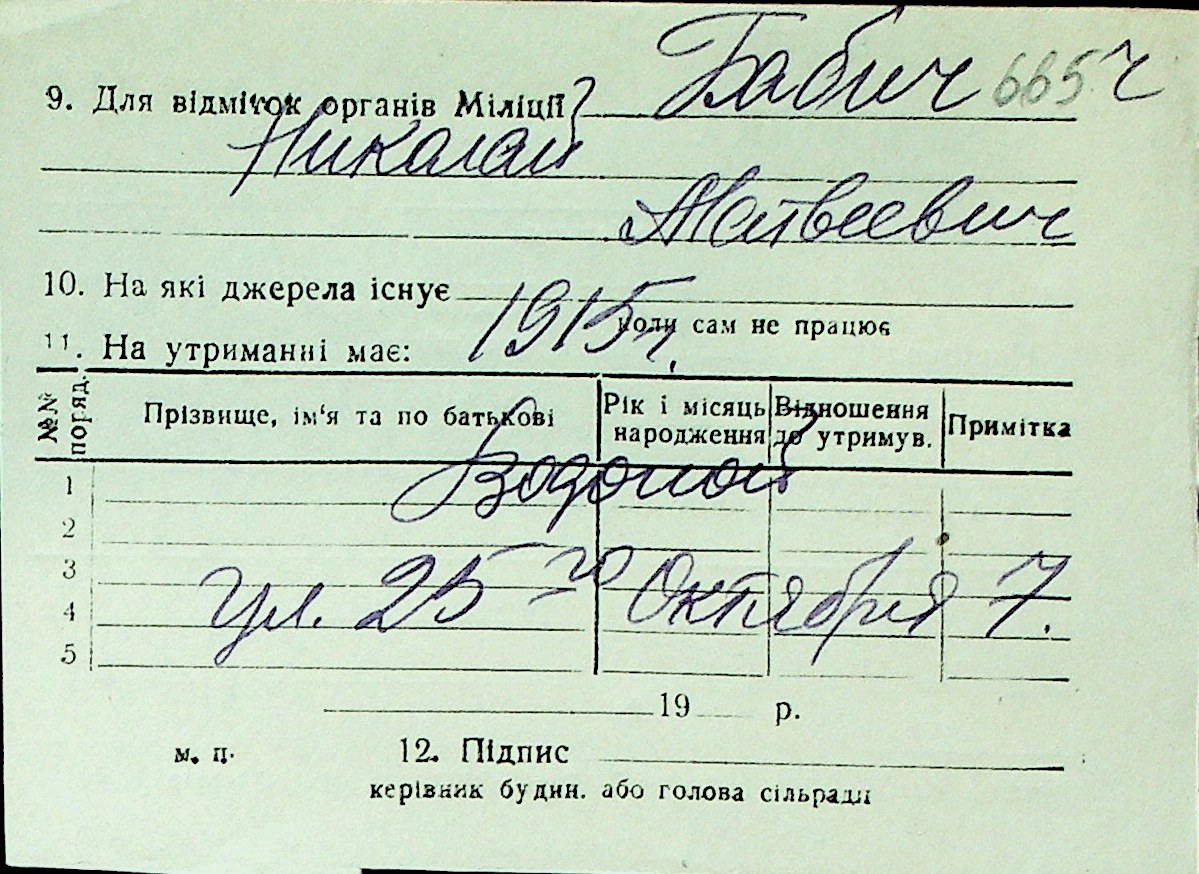 Бабич 665 ч
9. Для відміток органів Міліції
Николай
Матвеевич
10. На які джерела існує 1915 г.
коли сам не працює
11. На утриманні має:
№№ поряд. Прізвище, ім'я та по батькові Рік і місяць народження Відношення до утримув. Примітка
1 Водопой
2
3 ул. 25-го Октября 7.
4
5
19 р.
м. п. 12. Підпис
керівник будин. або голова сільради